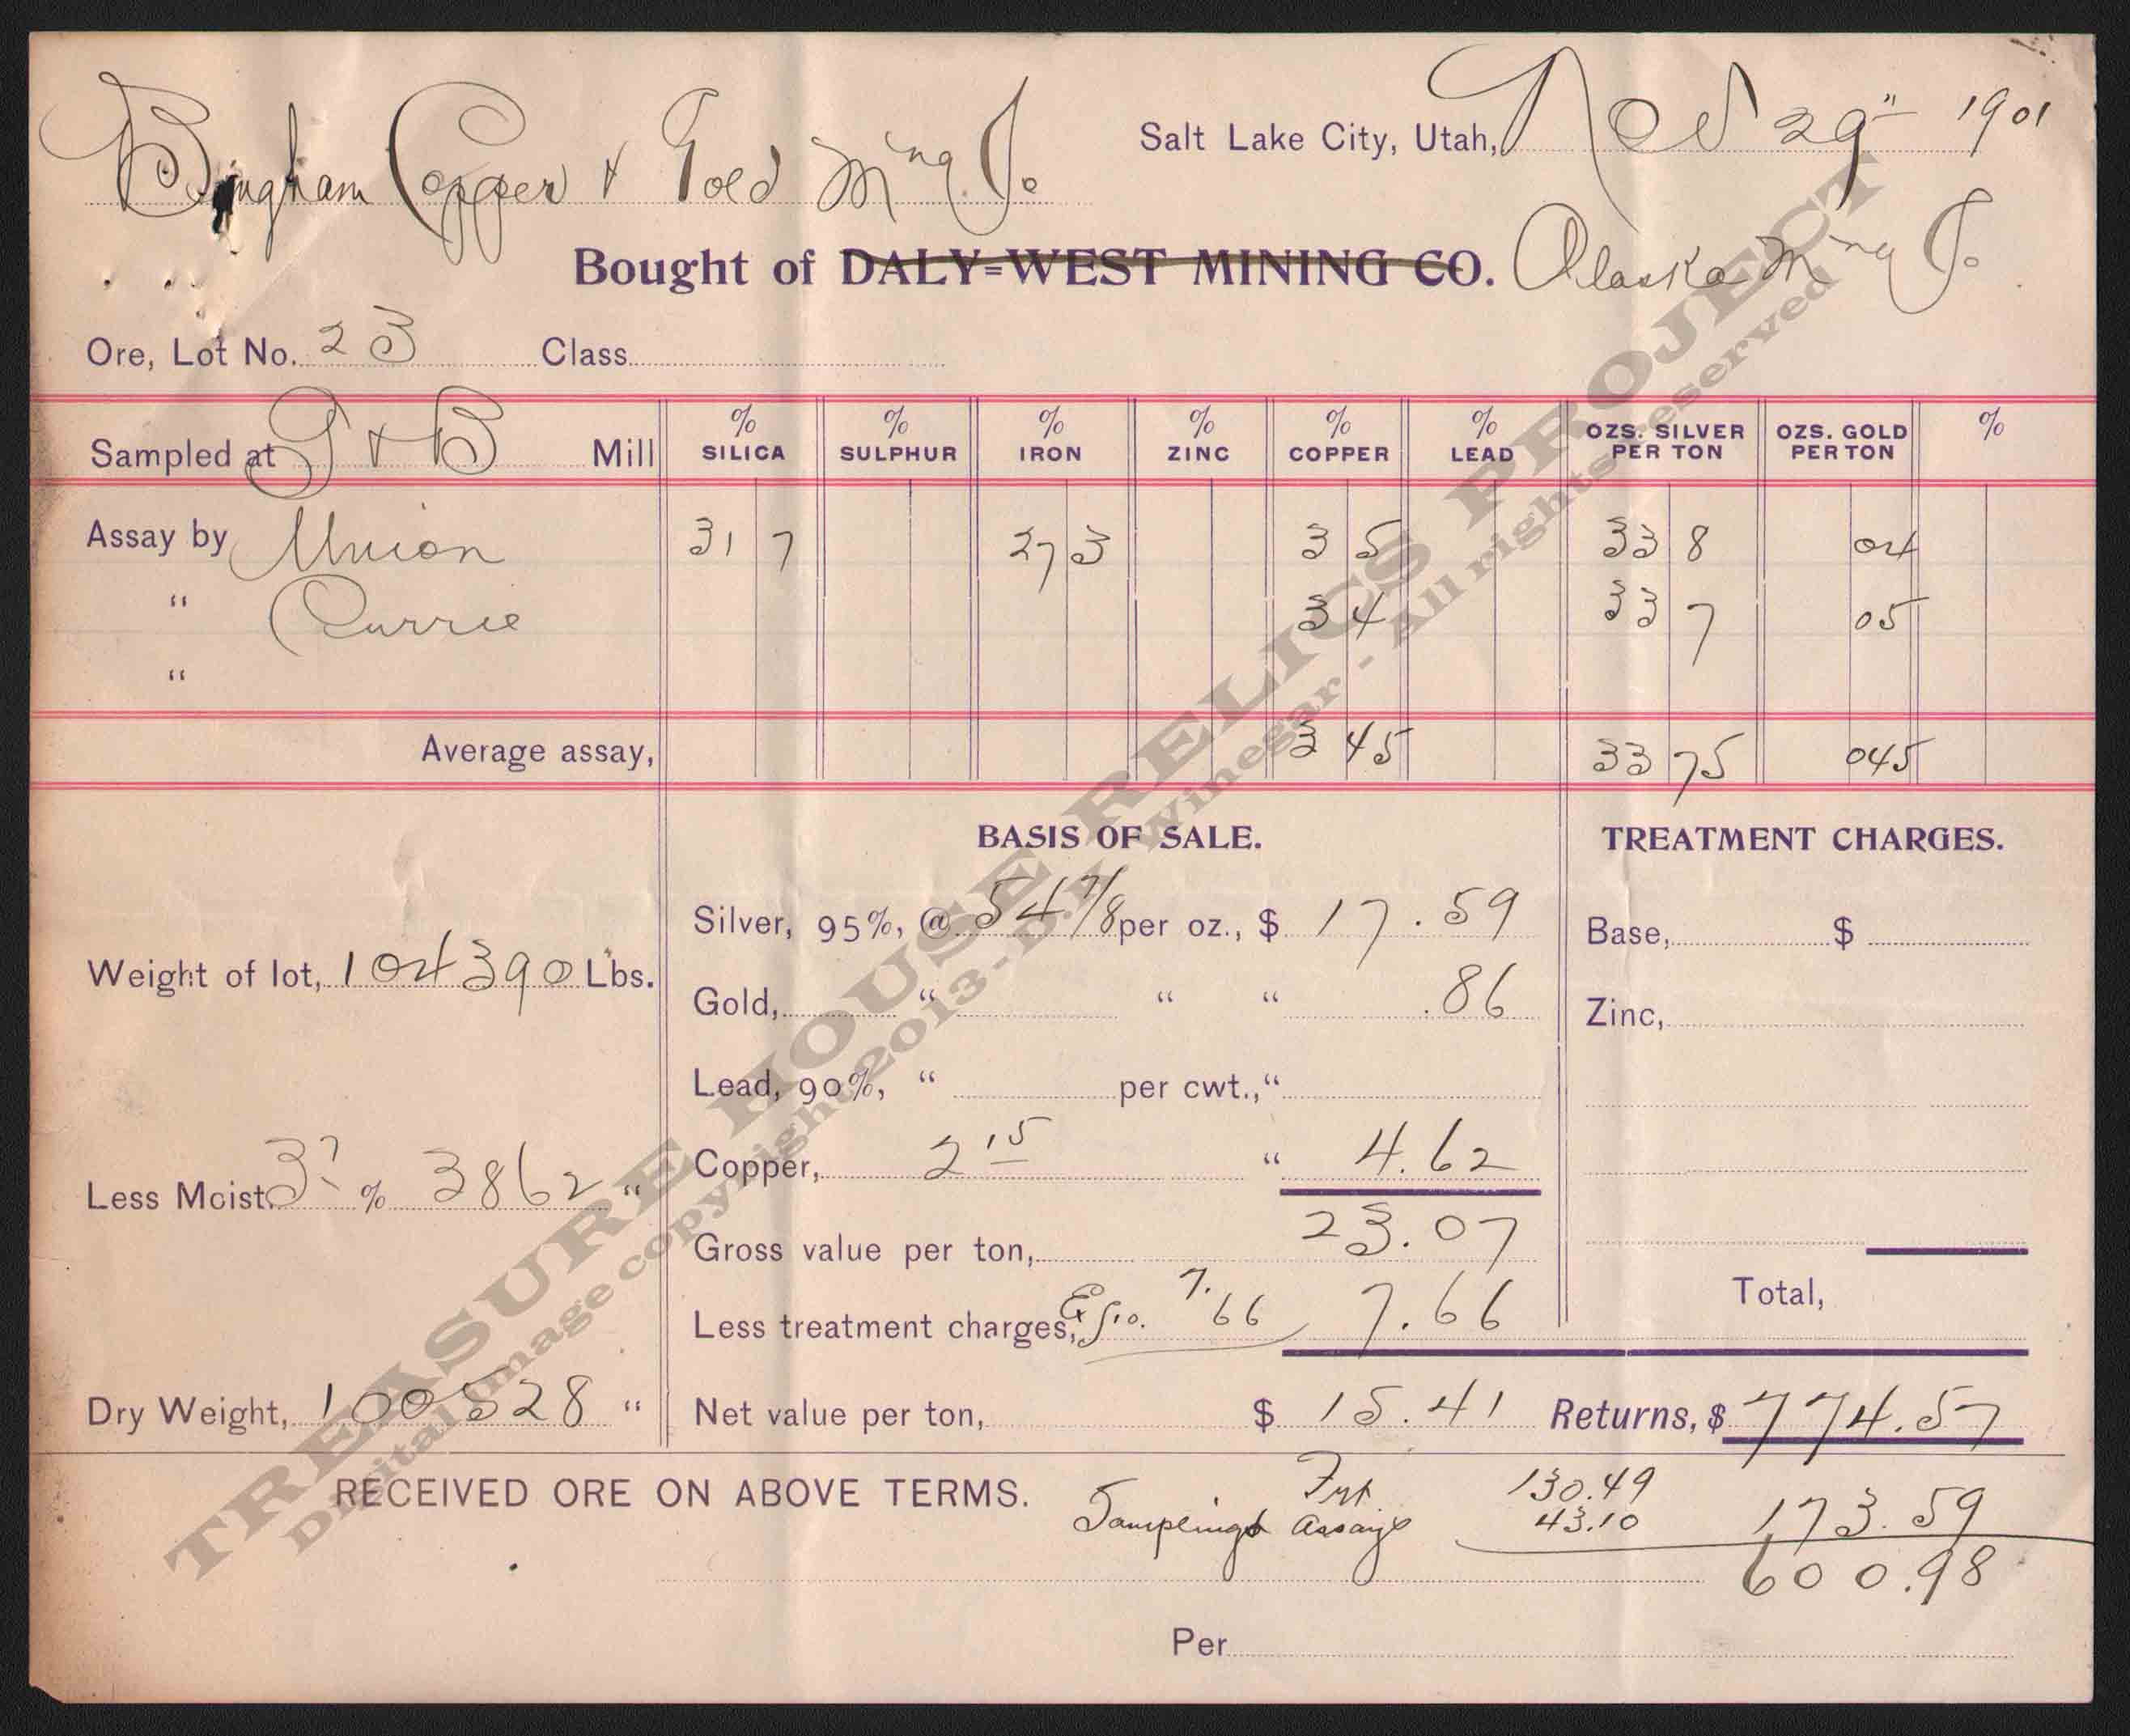 Salt Lake City, Utah, Nov 29" 1901
Bingham Copper & Gold Mng Co
Bought of DALY=WEST MINING CO. Alaska Mng Co
Ore, Lot No. 23 Class
Sampled at G & B Mill
% SILICA % SULPHUR % IRON % ZINC % COPPER % LEAD OZS. SILVER PER TON OZS. GOLD PER TON %
Assay by Union 31 7 27 3 3 5 33 8 04
" Currie 3 4 33 7 05
"
Average assay, 3 45 33 75 045
BASIS OF SALE. TREATMENT CHARGES.
Silver, 95%, @ 54 7/8 per oz., $ 17.59 Base, $
Weight of lot, 104390 Lbs.
Gold, " " " .86 Zinc,
Lead, 90%, " per cwt., "
Copper, 2 15 " 4.62
Less Moist. 3 7 % 3862 "
Gross value per ton, 23.07
Less treatment charges, 7.66 7.66 Total,
Dry Weight, 100528 " Net value per ton, $ 15.41 Returns, $ 774.57
RECEIVED ORE ON ABOVE TERMS. Frt. 130.49
Sampling & Assays 43.10 173.59
600.98
Per
TREASURE HOUSE RELICS PROJECT
Digital image copyright 2013 - D.K. Winegar - All rights reserved